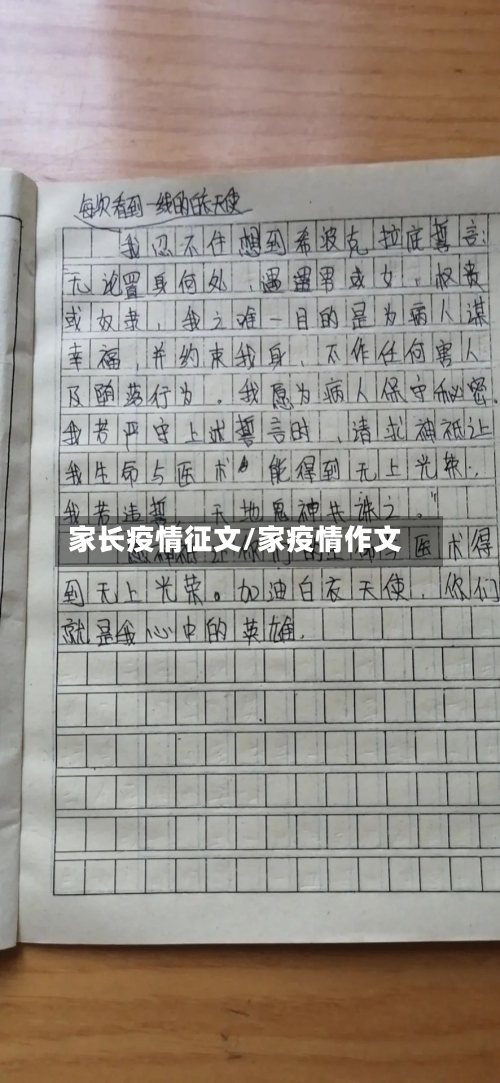 每次看到一线的白衣天使
我忍不住想到希波克拉底誓言:
无论置身何处,遇男或女,权贵
或奴隶,我之唯一目的是为病人谋
幸福,并约束我身,不作任何害人
及堕落行为。我愿为病人保守秘密.
我若严守上述誓言时,请求神祗让
我生命与医术能得到无上光荣;
我若违誓,天地鬼神共诛之。"
家长疫情征文/家疫情作文
医术得
到无上光荣。加油白衣天使,你们
就是我心中的英雄.